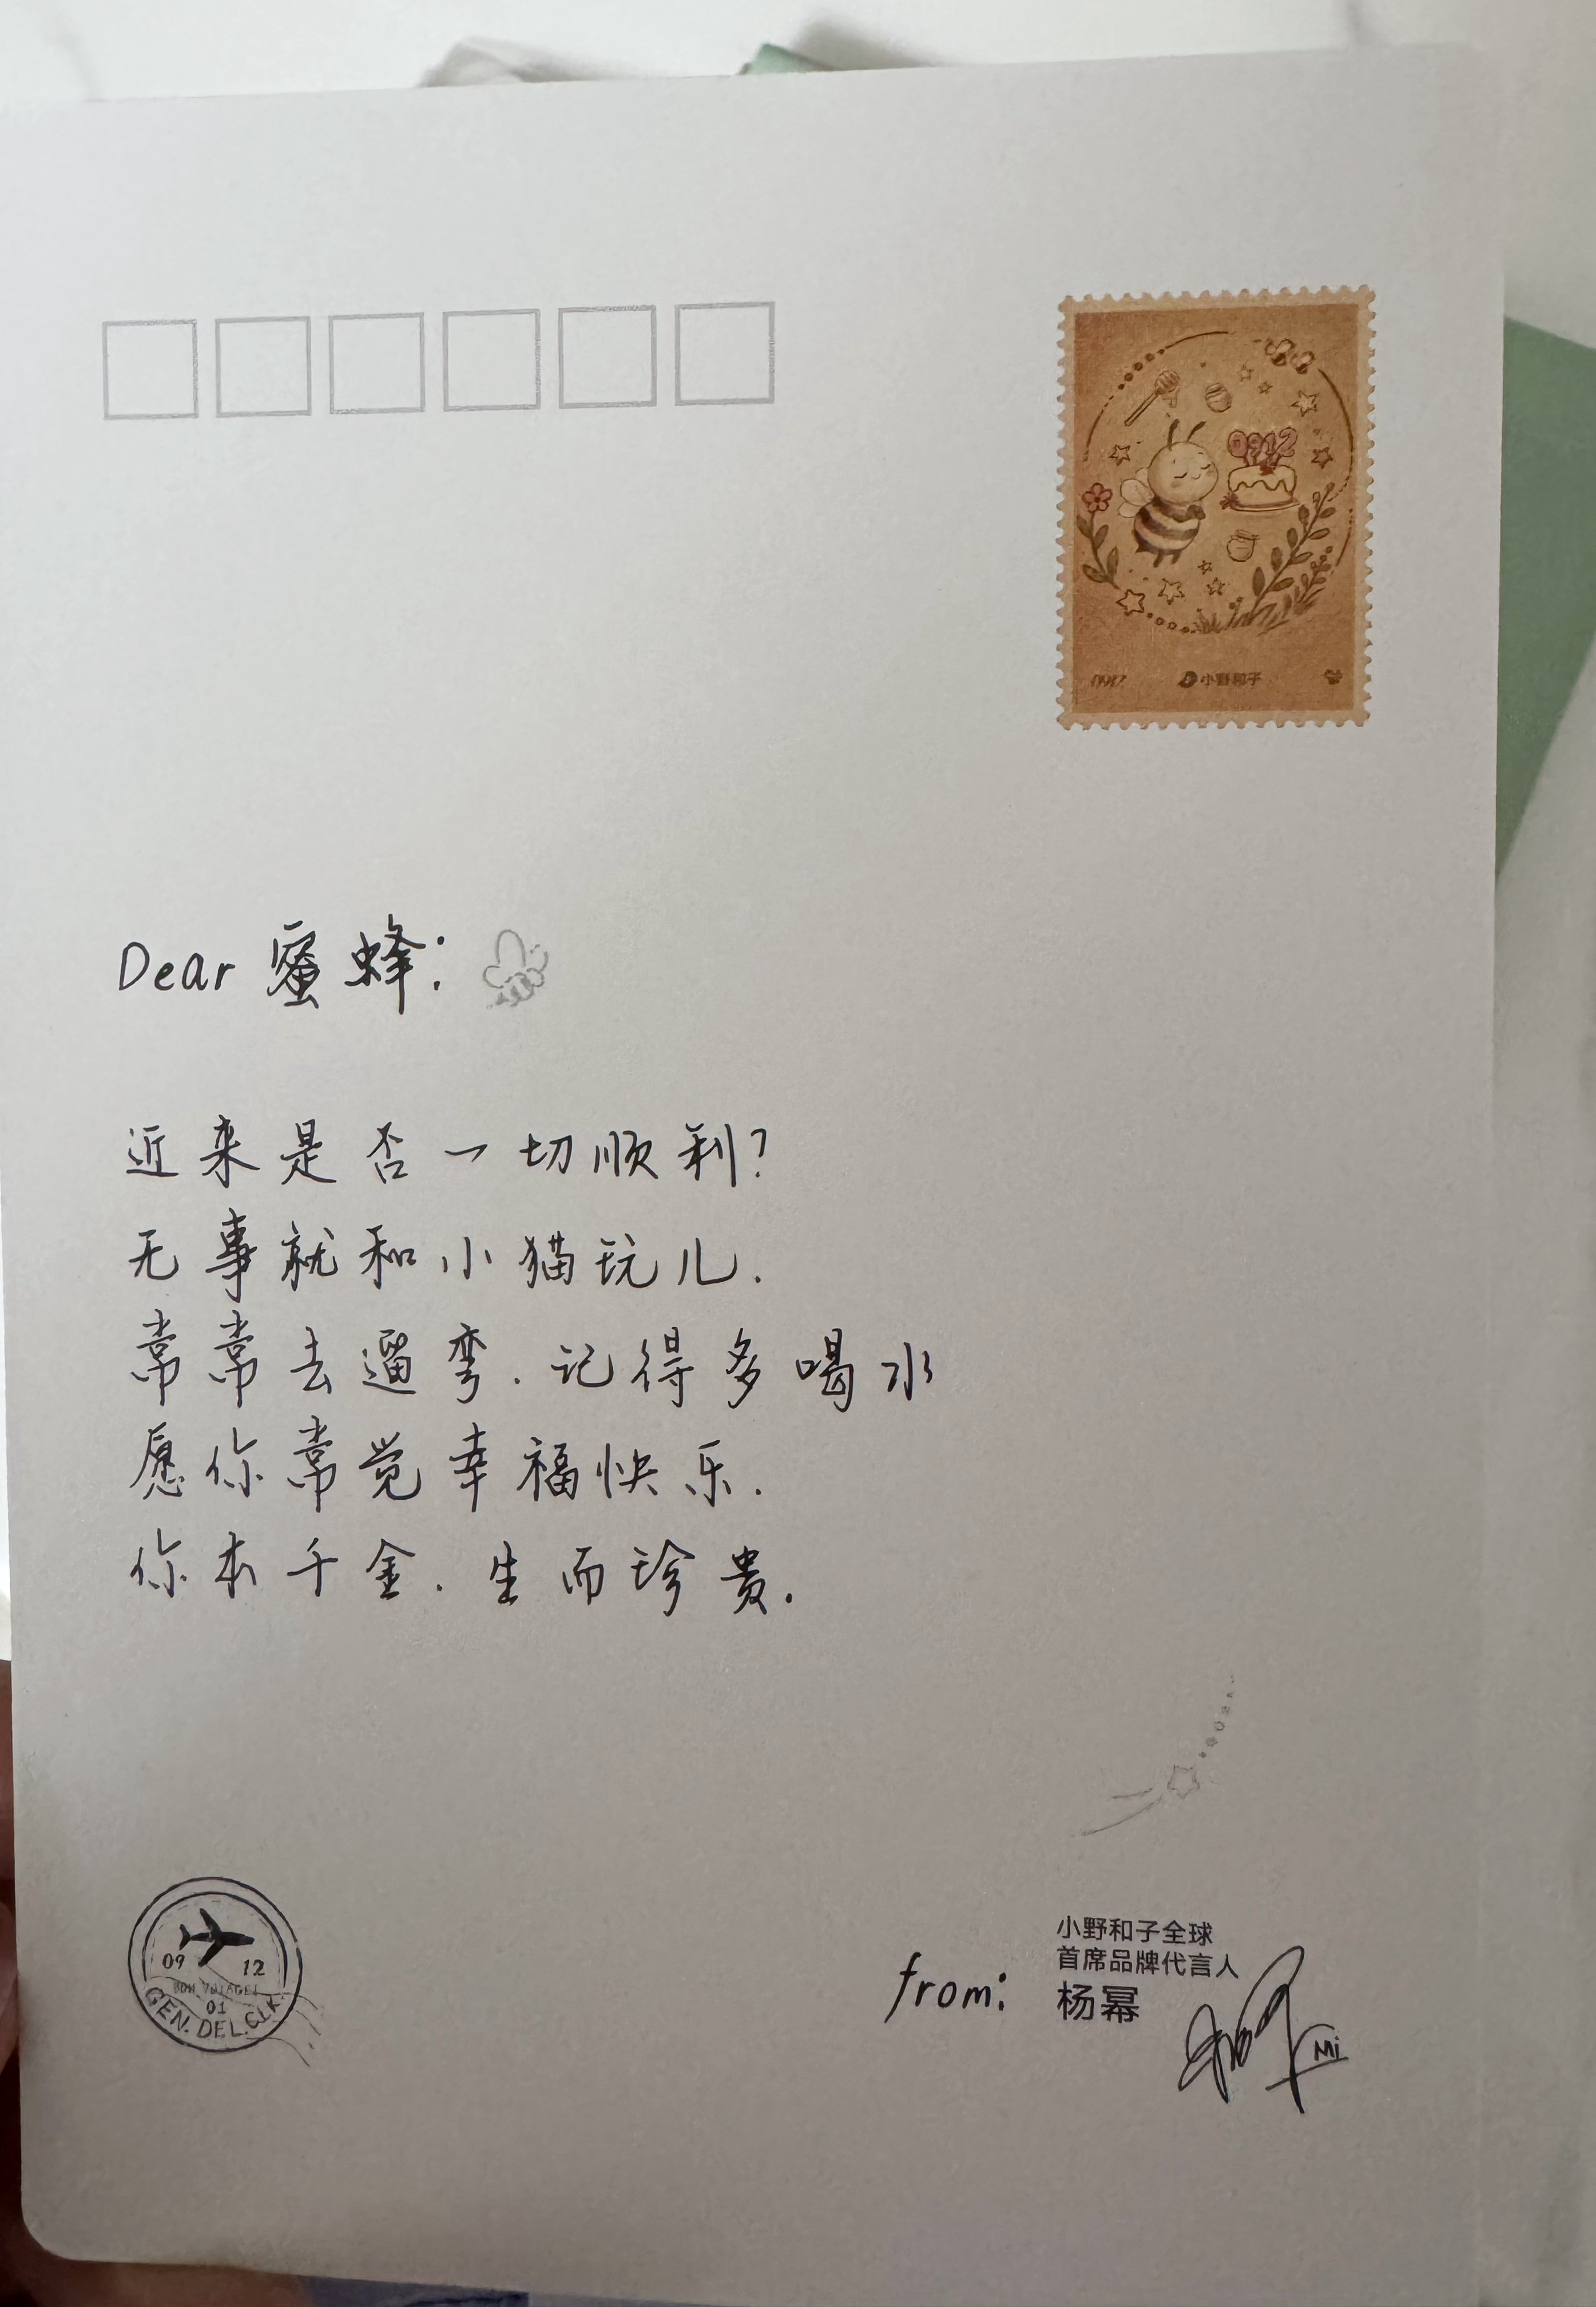 0912
0912
小野和子
Dear 蜜蜂:
近来是否一切顺利?
无事就和小猫玩儿.
常常去遛弯.记得多喝水
愿你常觉幸福快乐.
你本千金.生而珍贵.
09 12
BON VOYAGE!
01
GEN. DEL. CLK.
from:
小野和子全球
首席品牌代言人
杨幂
Mi